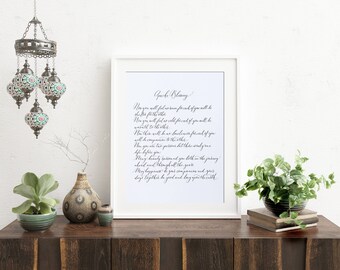 Apache Blessing
Now you will feel no rain for each of you will be
shelter for the other.
Now you will feel no cold for each of you will be
warmth to the other.
Now there will be no loneliness for each of you
will be companion to the other.
Now you are two persons but there is only one
life before you.
May beauty surround you both in the journey
ahead and through all the years.
May happiness be your companion and your
days together be good and long upon the earth.